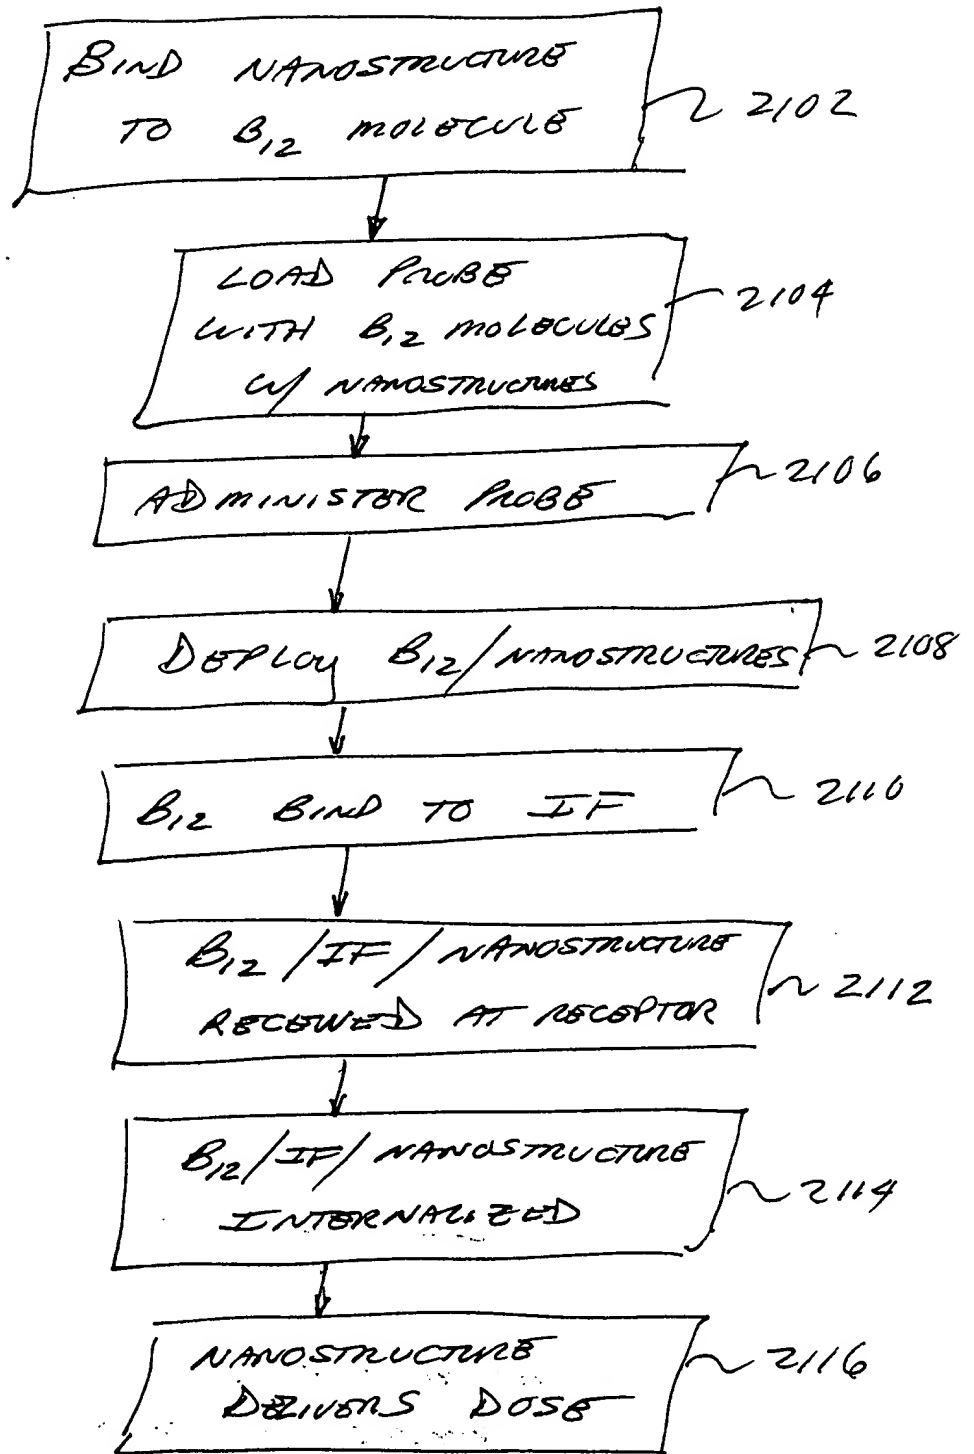 BIND NANOSTRUCTURE
TO B12 MOLECULE
2102
LOAD PROBE
WITH B12 MOLECULES
W/ NANOSTRUCTURES
2104
ADMINISTER PROBE
2106
DEPLOY B12/NANOSTRUCTURES
2108
B12 BIND TO IF
2110
B12/IF/NANOSTRUCTURE
RECEIVED AT RECEPTOR
2112
B12/IF/NANOSTRUCTURE
INTERNALIZED
2114
NANOSTRUCTURE
DELIVERS DOSE
2116